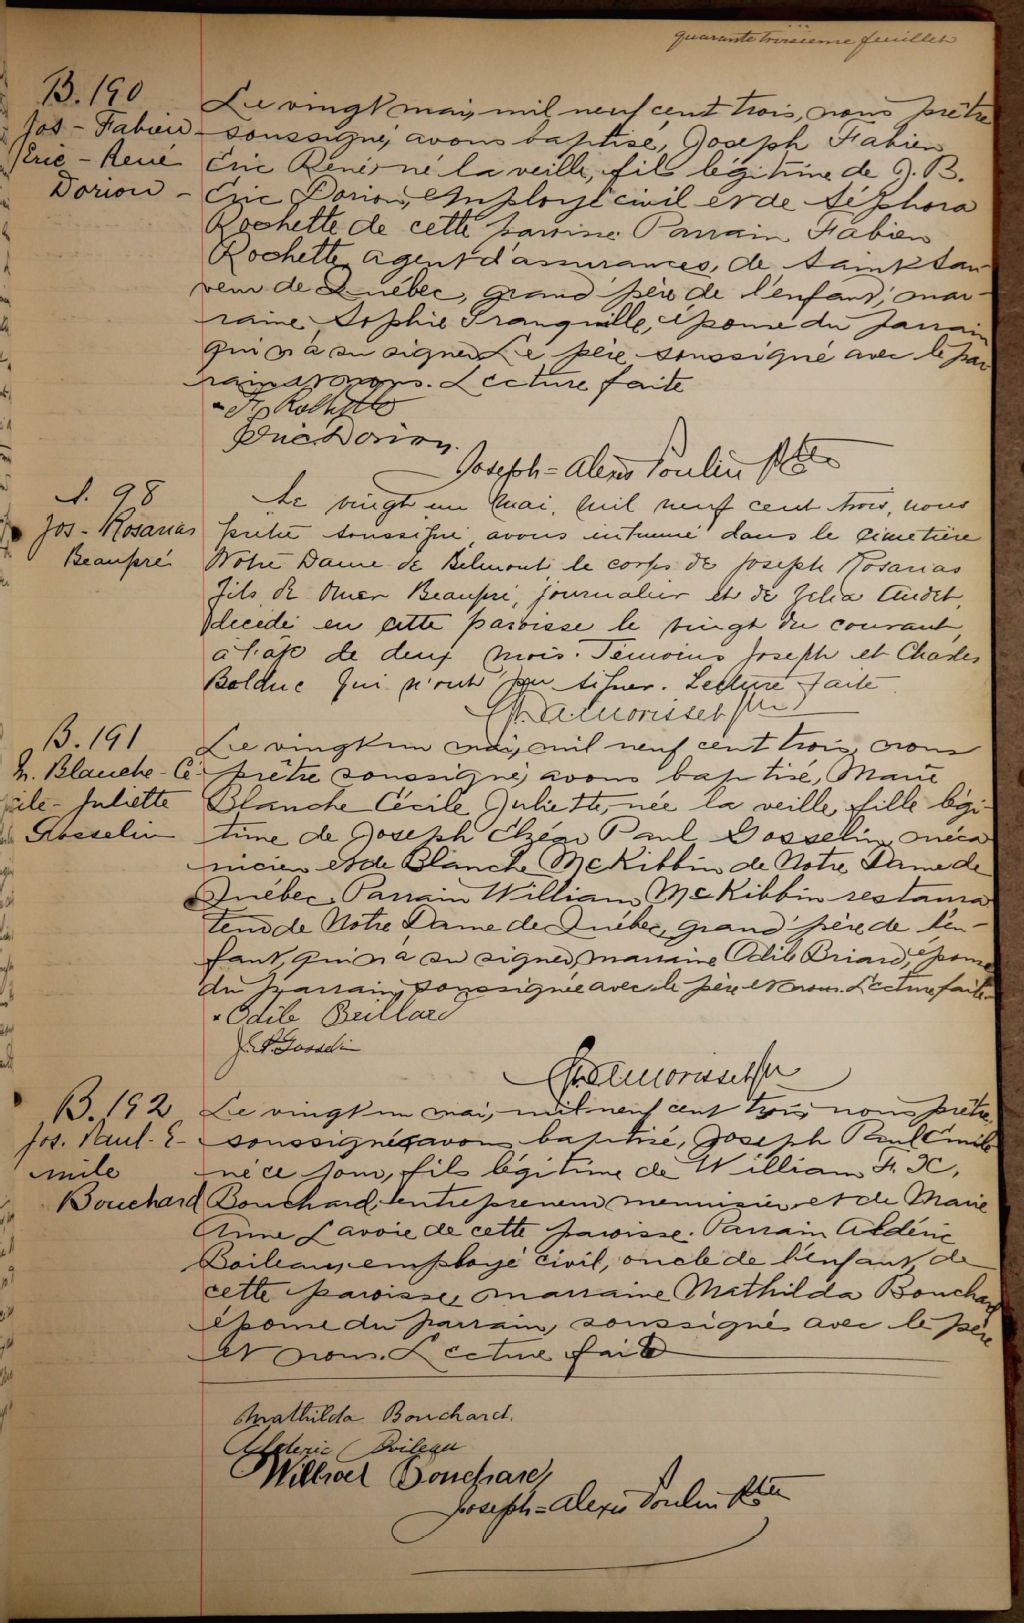 quarante troisième feuillet
B. 190
Jos - Fabien -
Eric - René
Dorion -
Le vingt mai, mil neuf cent trois, nous prêtre
soussigné, avons baptisé, Joseph Fabien
Eric René, né la veille, fils légitime de J. B.
Eric Dorion, employé civil et de Séphora
Rochette de cette paroisse. Parrain Fabien
Rochette, agent d'assurances, de Saint Sau-
veur de Québec, grand'père de l'enfant, mar-
raine Sophie Tranquille, épouse du parrain
qui n'a su signer. Le père soussigné avec le par-
rain et nous. Lecture faite
F. Rochette
Eric Dorion.
Joseph = Alexis Poulin Ptre
S. 98
Jos - Rosarias
Beaupré
Le vingt un mai, mil neuf cent trois, nous
prêtre soussigné, avons inhumé dans le cimetière
Notre Dame de Belmont, le corps de Joseph Rosarias
fils de Omer Beaupré, journalier et de Zelia Audet,
décédé en cette paroisse le vingt du courant,
à l'âge de deux mois. Témoins Joseph et Charles
Bolduc qui n'ont pu signer. Lecture faite
Morisset
B. 191
M. Blanche - Cé-
cile - Juliette
Gosselin
Le vingt un mai, mil neuf cent trois, nous
prêtre soussigné, avons baptisé, Marie
Blanche Cécile Juliette, née la veille, fille légi-
time de Joseph Elzéar Paul Gosselin, méca
nicien et de Blanche McKibbin de Notre Dame de
Québec. Parrain William McKibbin restaura
teur de Notre Dame de Québec, grand'père de l'en-
fant, qui n'a su signer, marraine Odile Briard, épouse
du parrain, soussignée avec le père et nous. Lecture faite
Odile Brillard
J.E.P. Gosselin
Morisset
B. 192
Jos. Paul - E-
mile
Bouchard
Le vingt un mai, mil neuf cent trois, nous prêtre
soussigné, avons baptisé, Joseph Paul Emile
né ce jour, fils légitime de William F. X.
Bouchard, entrepreneur menuisier et de Marie
Anne Lavoie de cette paroisse. Parrain Aldéric
Boileau, employé civil, oncle de l'enfant, de
cette paroisse, marraine Mathilda Bouchard
épouse du parrain, soussignés avec le père
et nous. Lecture faite
Mathilda Bouchard.
Alderic Boileau
Bouchard
Joseph = Alexis Poulin Ptre